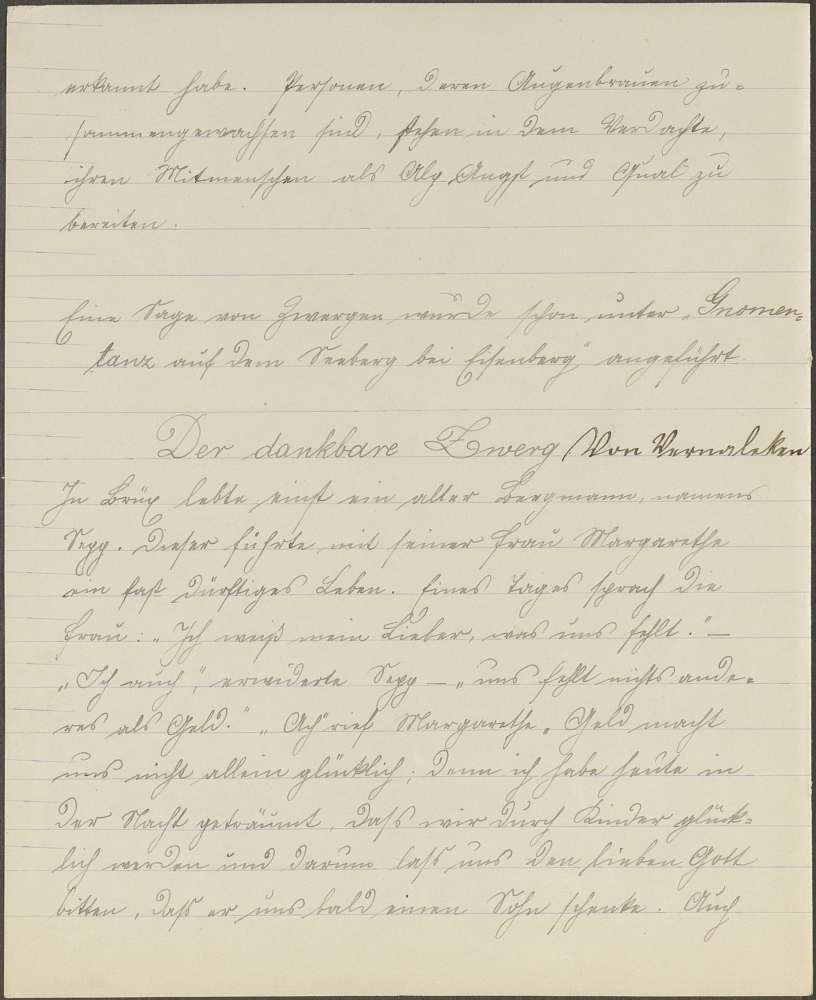 erkannt habe. Personen, deren Augenbrauen zu-
sammengewachsen sind, stehen in dem Verdachte,
ihren Mitmenschen als Alp Angst und Qual zu
bereiten.
Eine Sage von Zwergen wurde schon unter „Gnomen-
tanz auf dem Seeberg bei Eisenberg" angeführt.
Der dankbare Zwerg (Von Vernaleken
In Brüx lebte einst ein alter Bergmann, namens
Sepp. Dieser führte mit seiner Frau Margarethe
ein fast dürftiges Leben. Eines Tages sprach die
Frau: „Ich weiß mein Lieber, was uns fehlt." —
„Ich auch", erwiderte Sepp — „uns fehlt nichts ande-
res als Geld." „Ach" rief Margarethe „Geld macht
uns nicht allein glücklich; denn ich habe heute in
der Nacht geträumt, dass wir durch Kinder glück-
lich werden und darum lass uns den lieben Gott
bitten, dass er uns bald einen Sohn schenke. Auch